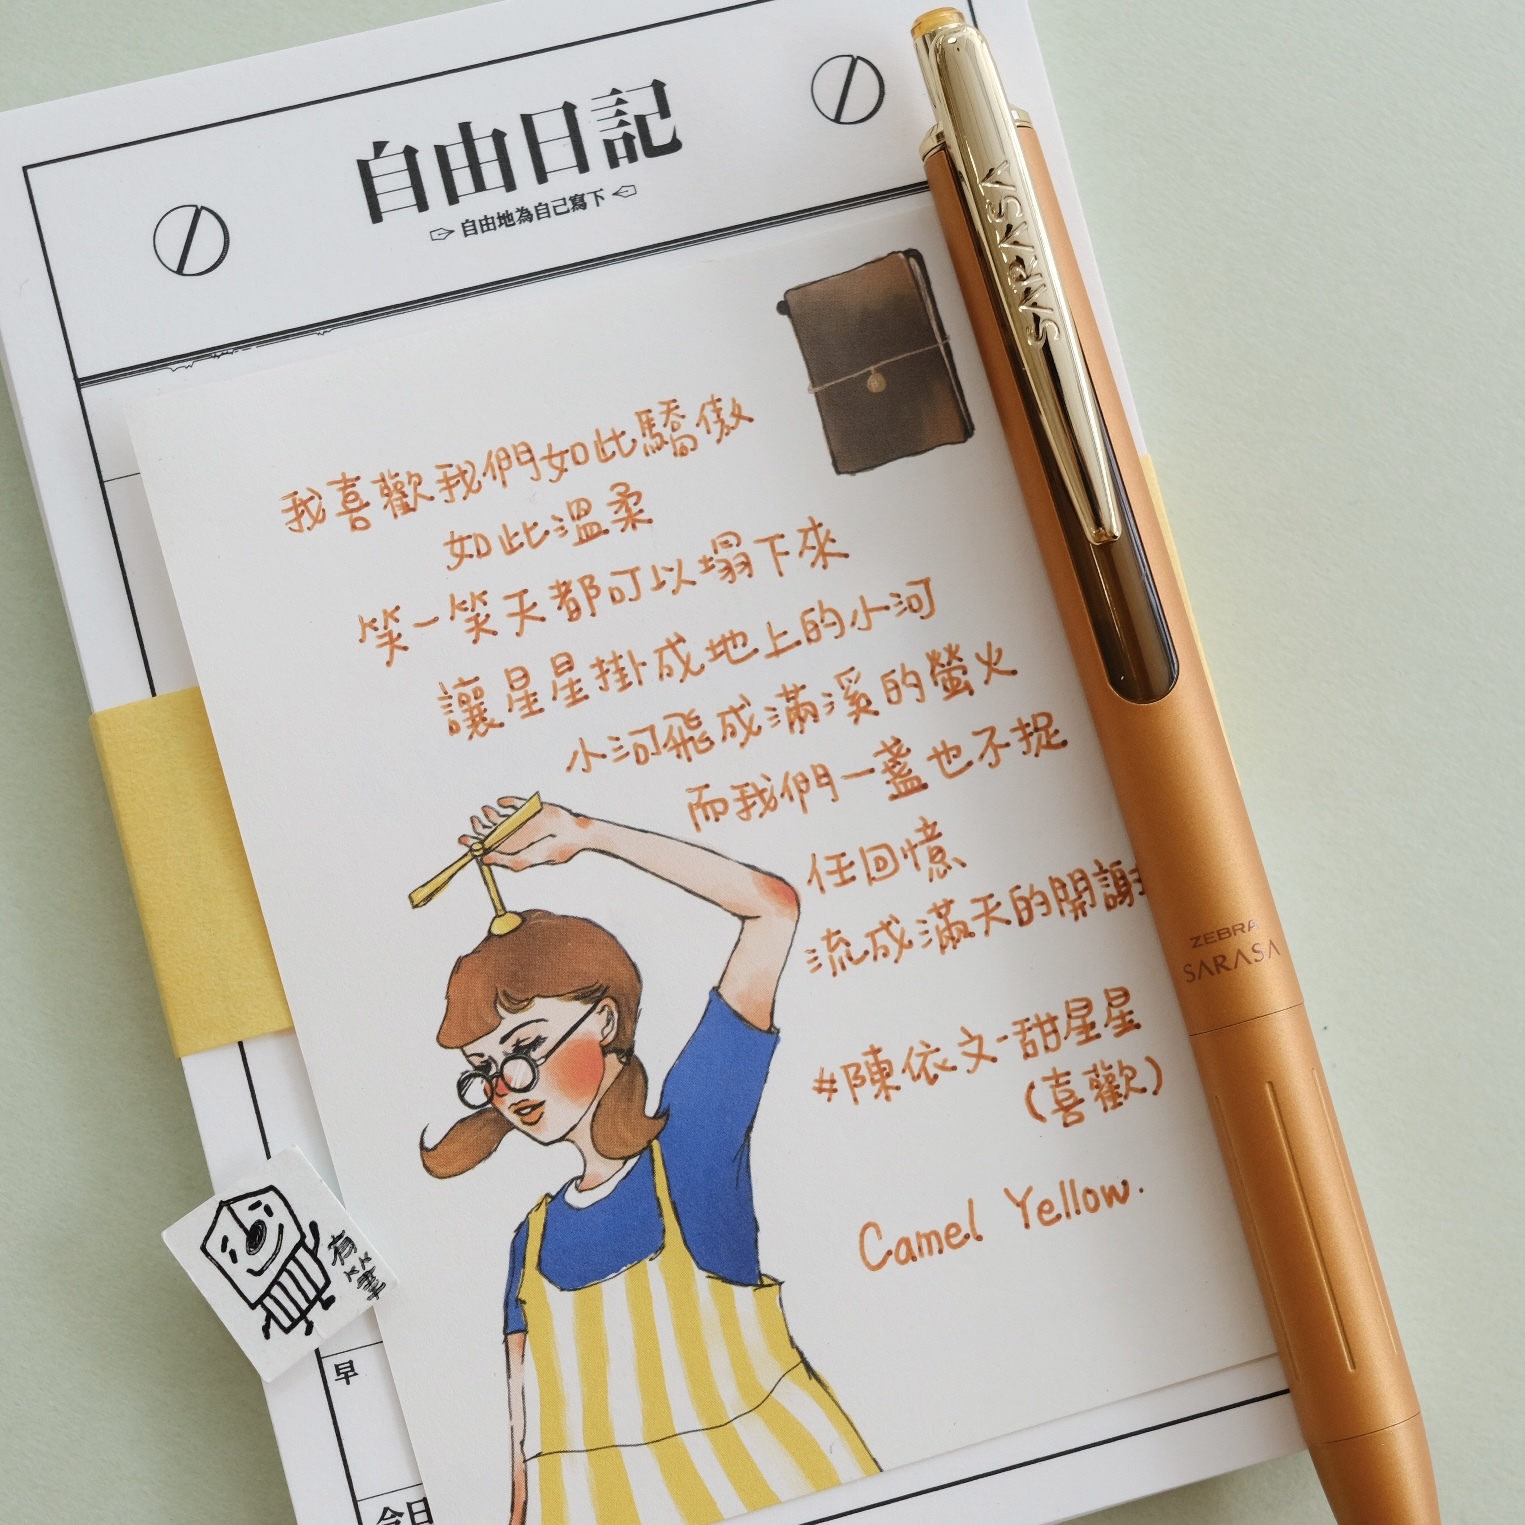 自由日記
自由地為自己寫下
SARASA
我喜歡我們如此驕傲
如此溫柔
笑一笑天都可以塌下來
讓星星掛成地上的小河
小河飛成滿溪的螢火
而我們一盞也不捉
任回憶
流成滿天的開謝
ZEBRA
SARASA
#陳依文-甜星星
(喜歡)
Camel Yellow.
有
筆
早
今日